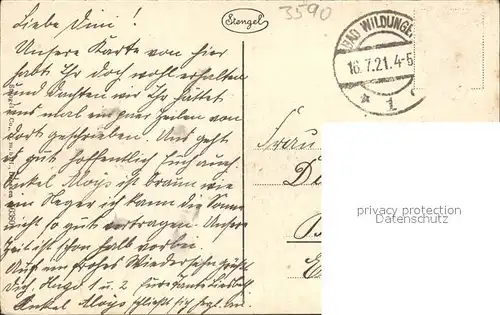 Liebe Dini!
Unsere Karte von hier
habt Ihr doch wohl erhalten
und dachten wir Ihr hättet
uns mal ein paar Zeilen von
dort geschrieben. Uns geht
es gut hoffentlich Euch auch.
Onkel Aloys ist braun wie
ein Neger ich kann die Sonne
nicht so gut vertragen. Unsere
Zeit ist schon halb vorbei.
Auf ein frohes Wiedersehn grüßt
Dich, Hugo 1 u. 2 Eure Tante
Onkel Aloys schließt sich
Stengel
3590
BAD WILDUNGE
16.7.21.4-5
* 1
Frau
privacy protection
Datenschutz